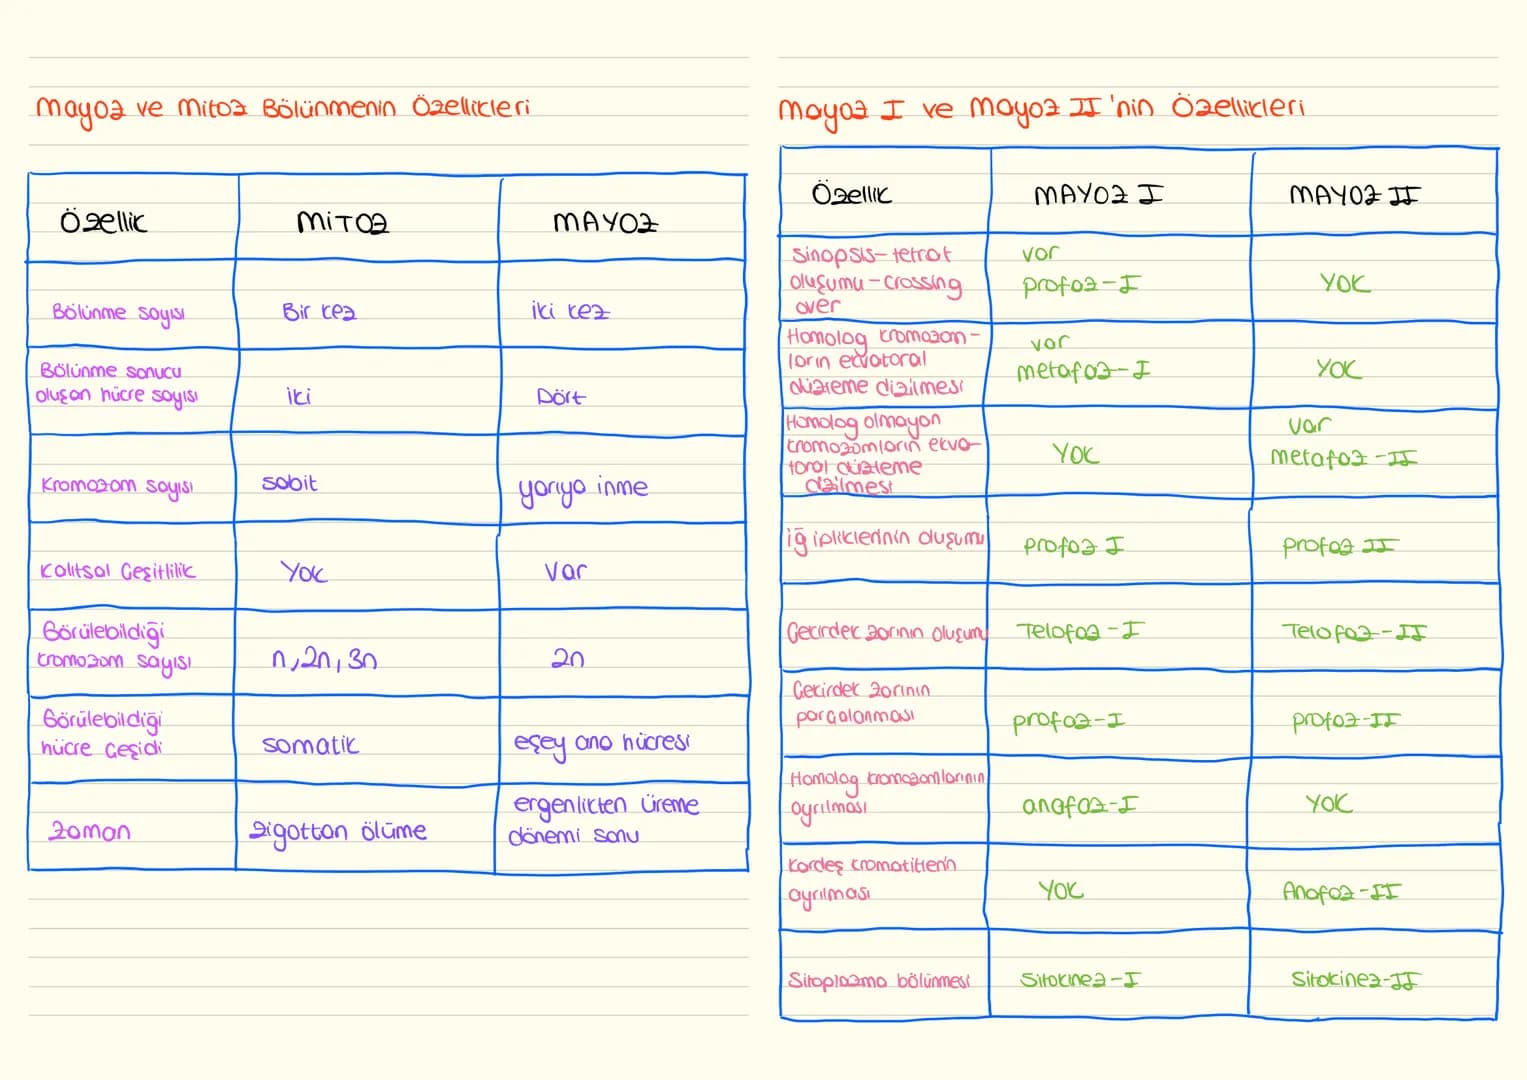 Mayoz ve Mitoz Bölünmenin Özellikleri
Özellik MİTOZ MAYOZ
Bölünme sayısı Bir kez iki kez
Bölünme sonucu
oluşan hücre sayısı iki Dört
Kromozom sayısı sabit yarıya inme
Kalıtsal Çeşitlilik Yok Var
Görülebildiği
kromozom sayısı n, 2n, 3n 2n
Görülebildiği
hücre Çeşidi somatik eşey ana hücresi
Zaman zigottan ölüme ergenlikten üreme
dönemi sonu
Mayoz I ve Mayoz II'nin Özellikleri
Özellik MAYOZ I MAYOZ II
Sinopsis-tetrat
oluşumu-crossing
over
var
profaz-I
YOK
Homolog kromozom-
ların ekvatoral
düzleme dizilmesi
var
metafaz-I
YOK
Homolog olmayan
kromozomların ekva-
toral düzleme
dizilmesi
YOK
var
metafaz-II
iğ ipliklerinin oluşumu profaz I profaz II
Çekirdek zarının oluşumu Telofaz-I Telofaz-II
Çekirdek zarının
parçalanması profaz-I profaz-II
Homolog kromozomlarının
ayrılması anafaz-I YOK
Kardeş kromatitlerin
ayrılması YOK Anafaz-II
Sitoplazma bölünmesi Sitokinez-I Sitokinez-II